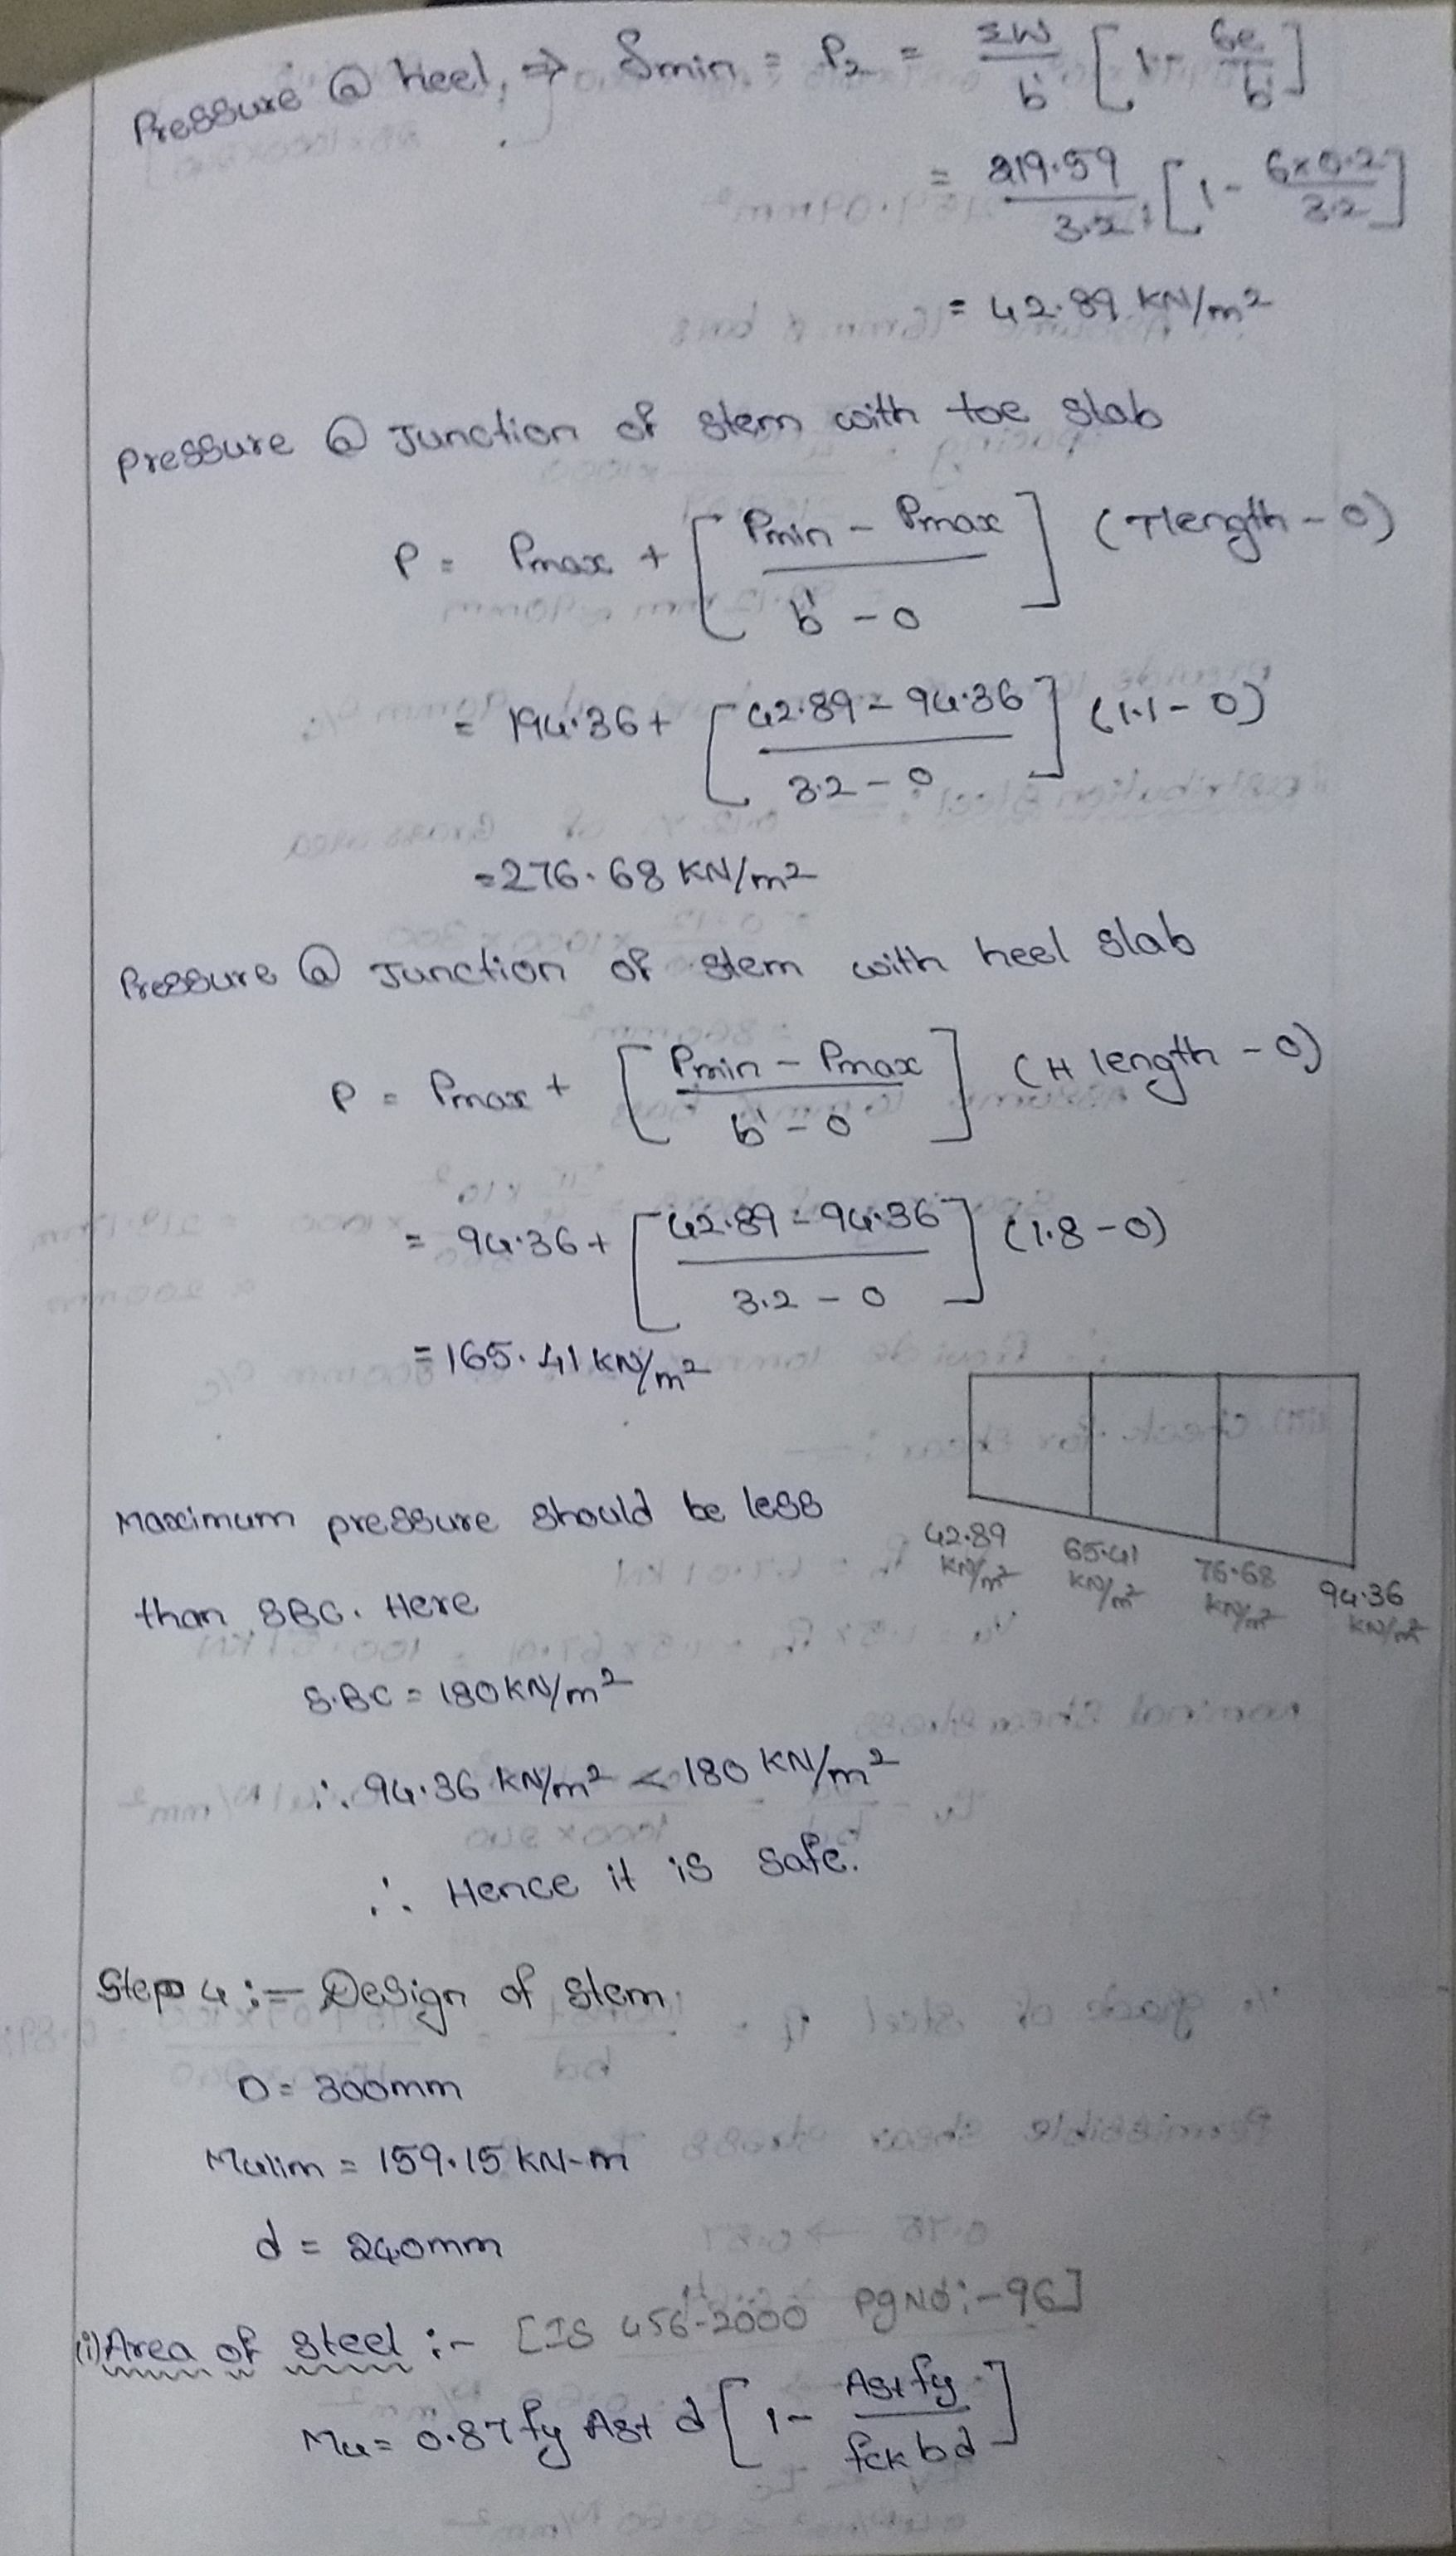 Pressure @ heel, ⇒ Smin = P2 = ΣW/b' [1 - 6e/b']
= 219.59/3.2 [1 - 6x0.2/3.2]
= 42.89 KN/m²
pressure @ Junction of stem with toe slab
P = Pmax + [Pmin - Pmax / b' - 0] (Tlength - 0)
= 194.36 + [42.89 - 94.36 / 3.2 - 0] (1.1 - 0)
= 276.68 KN/m²
Pressure @ Junction of stem with heel slab
P = Pmax + [Pmin - Pmax / b' - 0] (H length - 0)
= 94.36 + [42.89 - 94.36 / 3.2 - 0] (1.8 - 0)
= 165.41 KN/m²
Maximum pressure should be less
than SBC. Here
42.89 KN/m² 65.41 KN/m² 76.68 KN/m² 94.36 KN/m²
S.B.C = 180 KN/m²
∴ 94.36 KN/m² < 180 KN/m²
∴ Hence it is safe.
Step 4 :- Design of stem
D = 300mm
Mulim = 159.15 KN-m
d = 240mm
(i) Area of steel :- [IS 456-2000 Pg No:-96]
Mu = 0.87 fy Ast d [1 - Ast fy / fck bd]